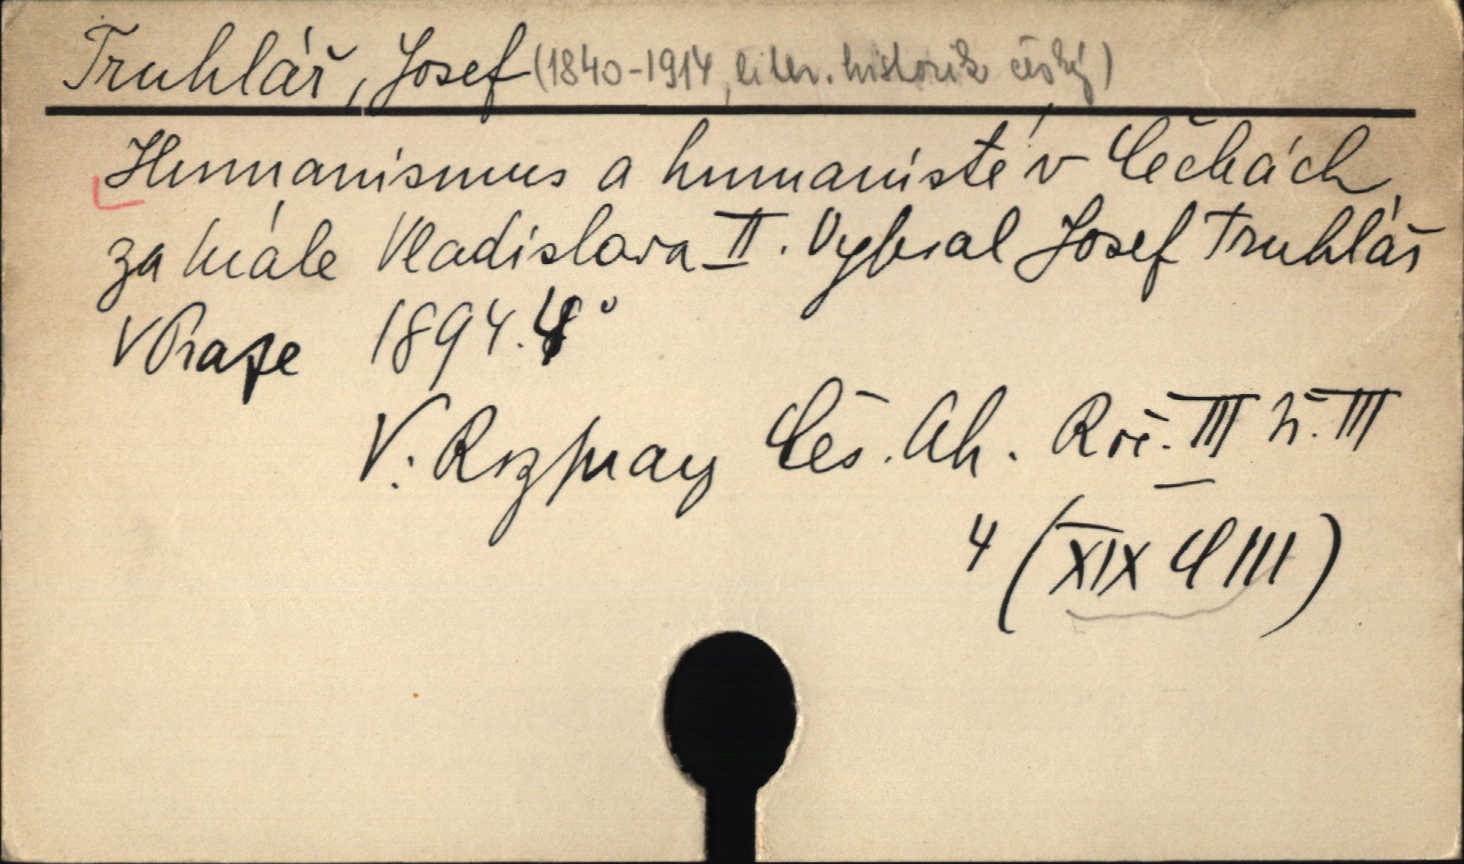 Truhlář, Josef (1840-1914, liter. historik český)
Humanismus a humanisté v Čechách
za krále Vladislava II. Vybral Josef Truhlář
V Praze 1894. 4°
V: Rozpravy Čes. Ak. Roč. III tř. III
4 (XIX C III)